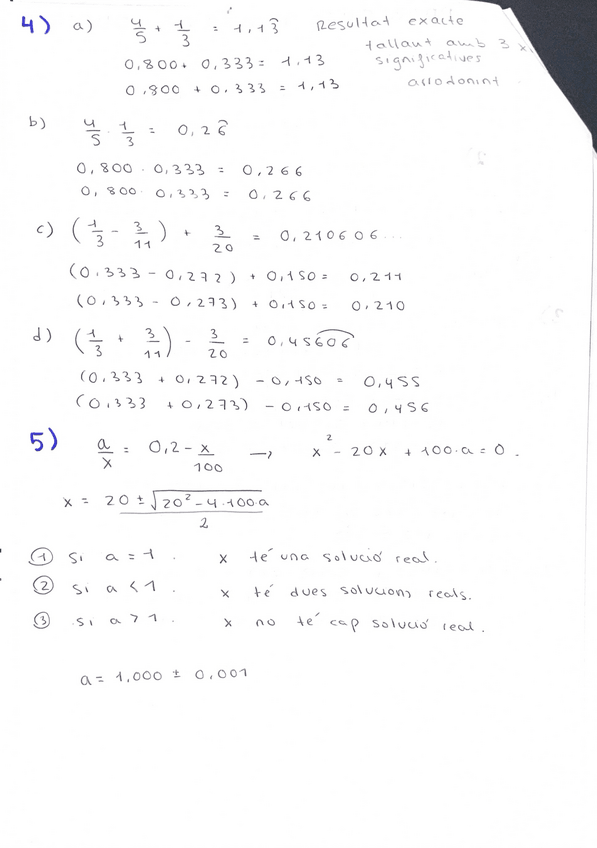 4) a) 4/5 + 1/3 = 1,13̂ Resultat exacte
0,800 + 0,333 = 1,13 tallant amb 3 significatives
0,800 + 0,333 = 1,13 arrodonint
b) 4/5 · 1/3 = 0,26̂
0,800 · 0,333 = 0,266
0,800 · 0,333 = 0,266
c) (1/3 - 3/11) + 3/20 = 0,210606...
(0,333 - 0,272) + 0,150 = 0,211
(0,333 - 0,273) + 0,150 = 0,210
d) (1/3 + 3/11) - 3/20 = 0,45606
(0,333 + 0,272) - 0,150 = 0,455
(0,333 + 0,273) - 0,150 = 0,456
5) a/x = 0,2 - x/100 → x² - 20x + 100·a = 0.
x = (20 ± √(20² - 4·100·a))/2
① Si a = 1. x té una solució real.
② Si a < 1. x té dues solucions reals.
③ Si a > 1. x no té cap solució real.
a = 1,000 ± 0,001